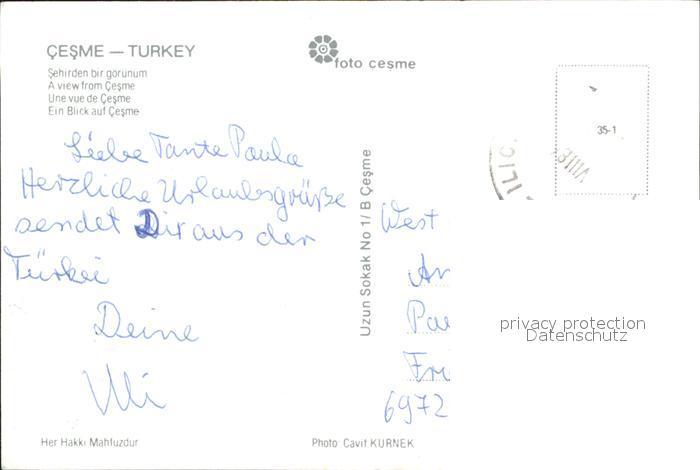 ÇEŞME — TURKEY
Şehirden bir görünum
A view from Çeşme
Une vue de Çeşme
Ein Blick auf Çeşme
foto ceşme
35-1
Liebe Tante Paula
Herzliche Urlaubsgrüße
sendet Dir aus der
Türkei
Deine
Uli
Uzun Sokak No 1/ B Çeşme
West
6972
privacy protection
Datenschutz
Her Hakkı Mahfuzdur
Photo Cavit KÜRNEK